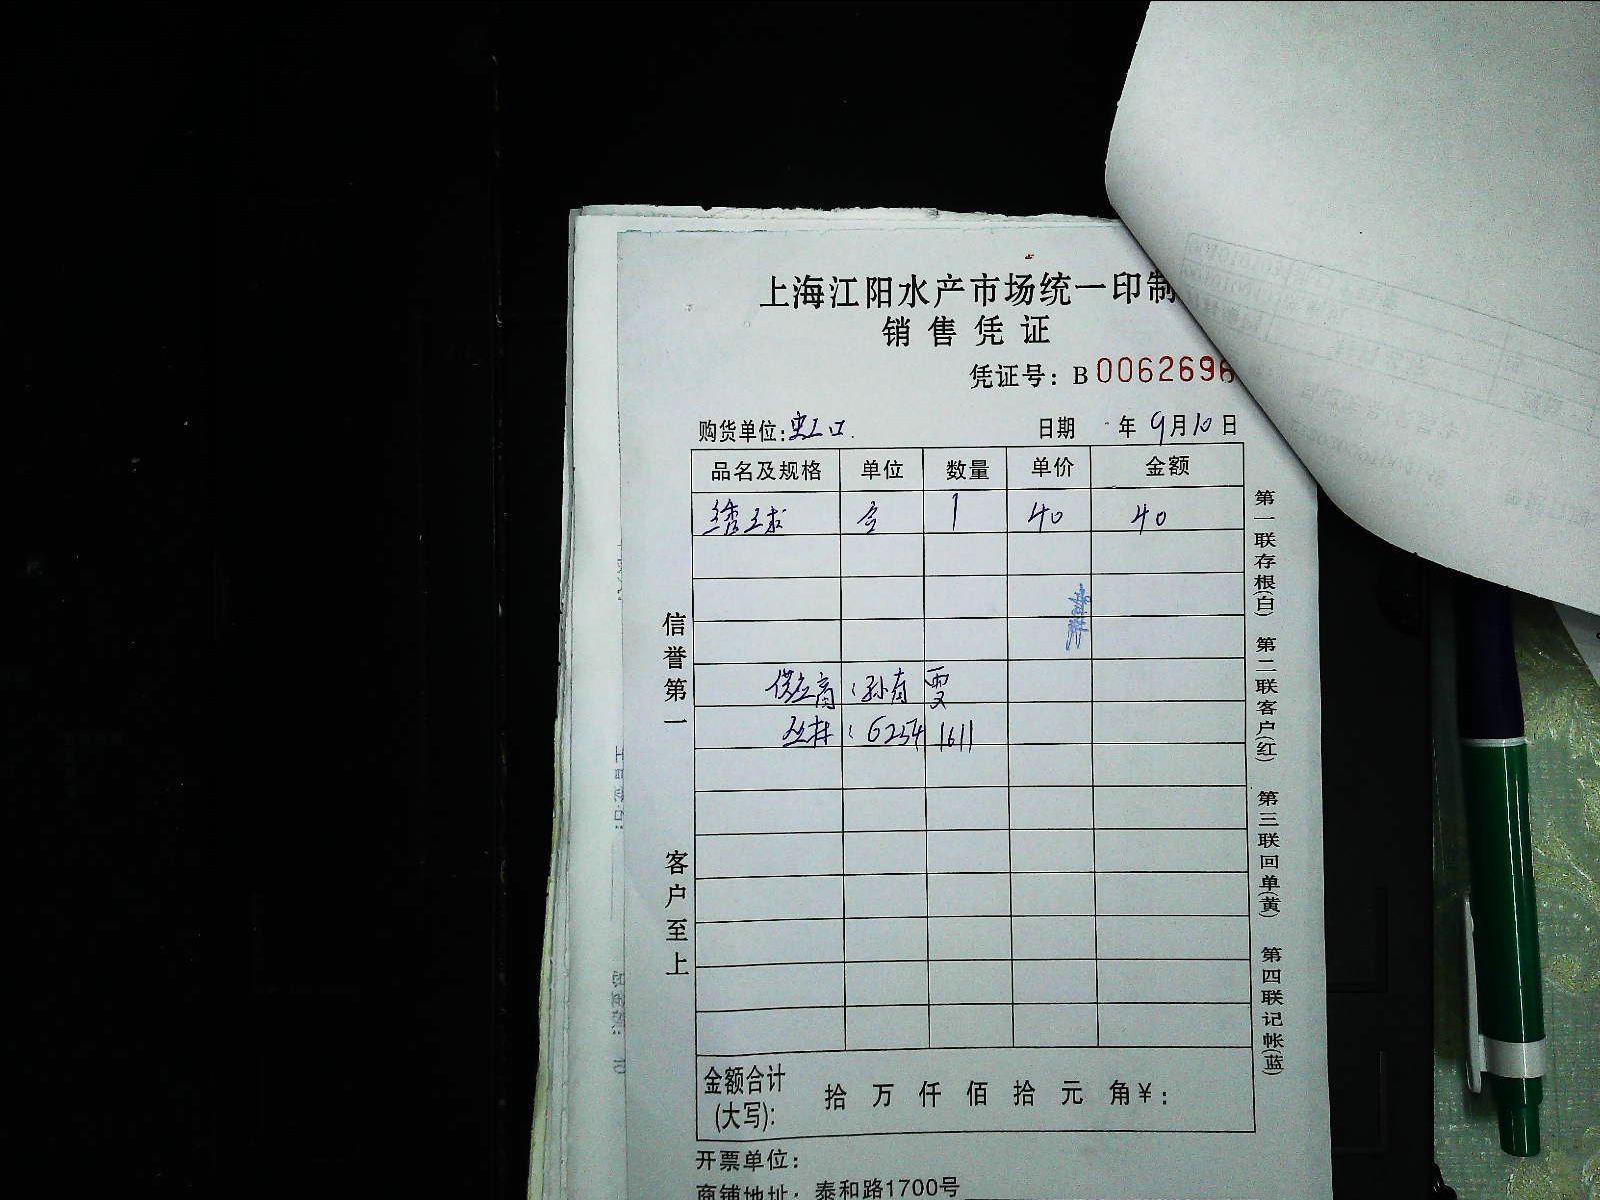 上海江阳水产市场统一印制
销售凭证
凭证号：B 0062696
购货单位：虹口
日期 年 9月10日
品名及规格 单位 数量 单价 金额
绣球 盒 1 40 40
供应商：孙有雯
丛林：62541611
信誉第一
客户至上
第一联存根(白) 第二联客户(红) 第三联回单(黄) 第四联记帐(蓝)
金额合计(大写)： 拾 万 仟 佰 拾 元 角 ¥：
开票单位：
商铺地址：泰和路1700号